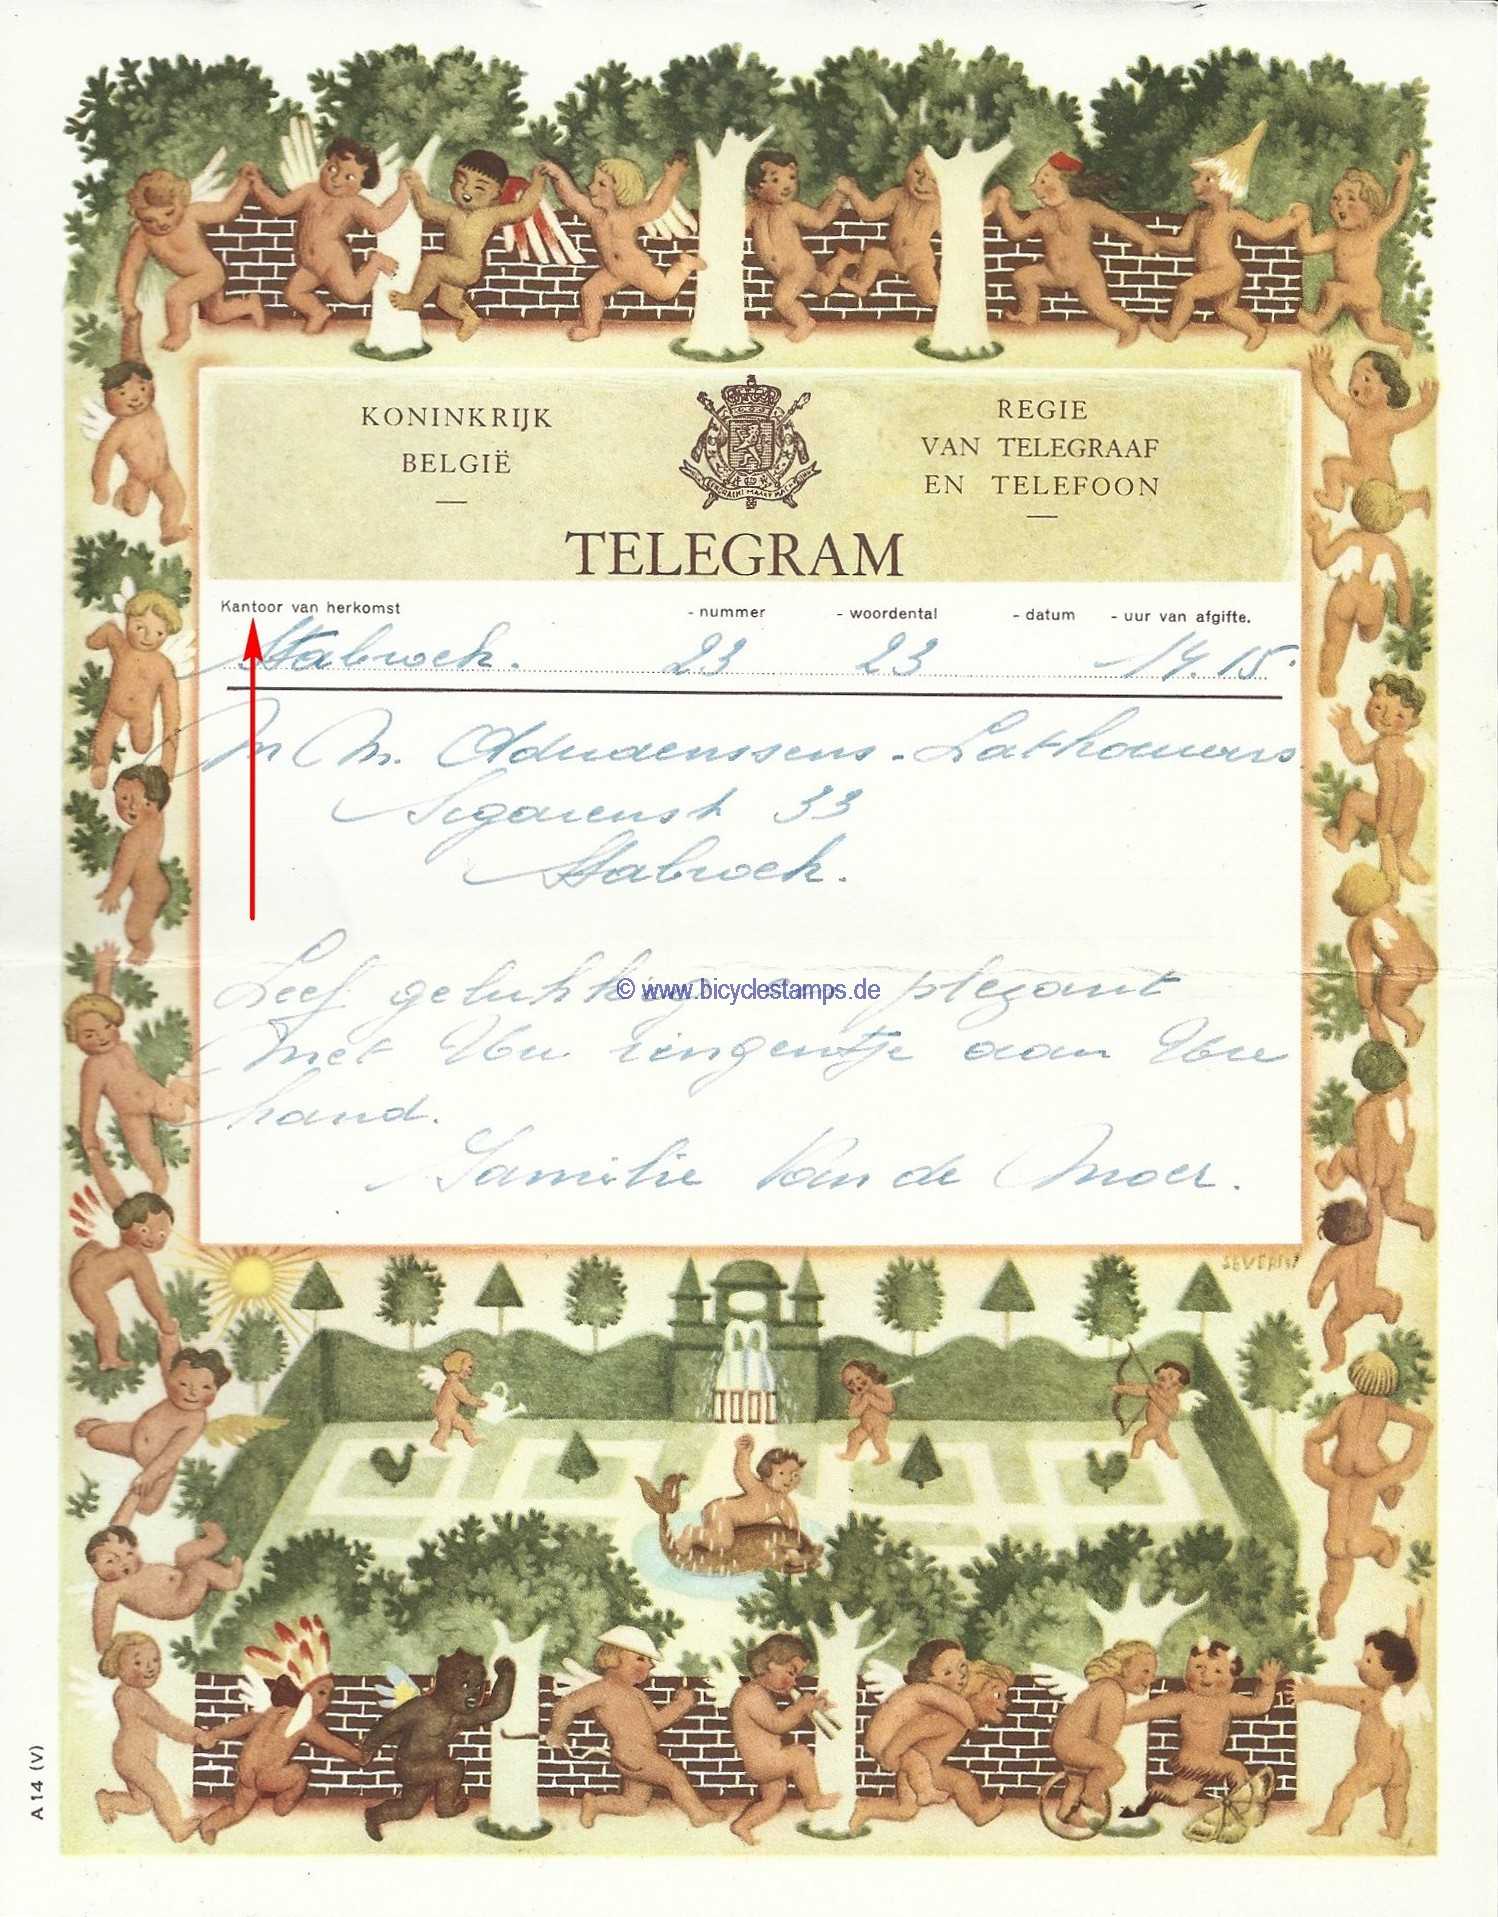 KONINKRIJK
BELGIË
REGIE
VAN TELEGRAAF
EN TELEFOON
EENDRACHT MAAKT MACHT
TELEGRAM
Kantoor van herkomst - nummer - woordental - datum - uur van afgifte.
Stabroek. 23 23 14.15.
M M. Adriaenssens - Lathouwers
33
Stabroek.
Leef gelukkig plezant
© www.bicyclestamps.de
met Uw ringentje aan Uw
hand.
Familie Van de Moer.
SEVERIN
A 14 (V)